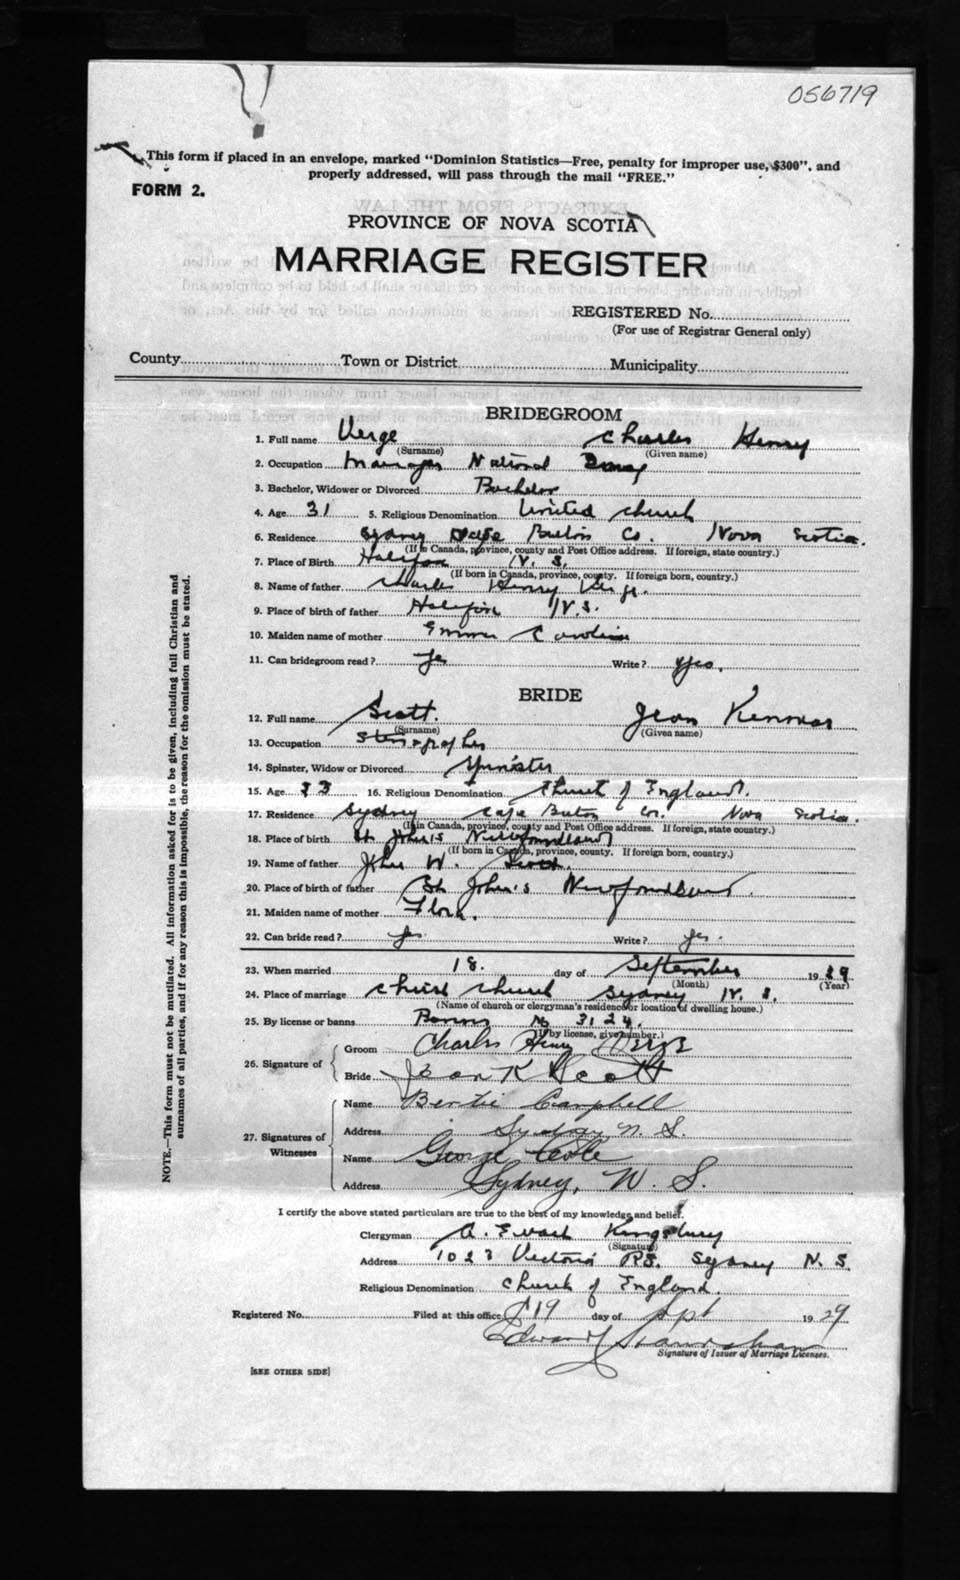 056719
This form if placed in an envelope, marked "Dominion Statistics—Free, penalty for improper use, $300", and
properly addressed, will pass through the mail "FREE."
FORM 2.
PROVINCE OF NOVA SCOTIA
MARRIAGE REGISTER
REGISTERED No.
(For use of Registrar General only)
County Town or District Municipality
BRIDEGROOM
1. Full name Verge Charles Henry
(Surname) (Given name)
2. Occupation Manager National
3. Bachelor, Widower or Divorced Bachelor
4. Age 31 5. Religious Denomination United Church
6. Residence Sydney Cape Breton Co. Nova Scotia.
(If in Canada, province, county and Post Office address. If foreign, state country.)
7. Place of Birth Halifax N. S.
(If born in Canada, province, county. If foreign born, country.)
8. Name of father Charles Henry Verge.
9. Place of birth of father Halifax N. S.
10. Maiden name of mother Emma Caroline
11. Can bridegroom read? Yes Write? Yes.
BRIDE
12. Full name Scott. Jean
(Surname) (Given name)
13. Occupation Stenographer
14. Spinster, Widow or Divorced Spinster
15. Age 23 16. Religious Denomination Church of England.
17. Residence Sydney Cape Breton Co. Nova Scotia.
(If in Canada, province, county and Post Office address. If foreign, state country.)
18. Place of birth St John's Newfoundland
(If born in Canada, province, county. If foreign born, country.)
19. Name of father John W. Scott.
20. Place of birth of father St John's Newfoundland.
21. Maiden name of mother Flora.
22. Can bride read? Yes Write? Yes.
23. When married 18. day of September 1929
(Month) (Year)
24. Place of marriage Christ Church Sydney N. S.
(Name of church or clergyman's residence or location of dwelling house.)
25. By license or banns Banns No 3124.
(If by license, give number.)
26. Signature of Groom Charles Henry Verge
Bride Jean K Scott
27. Signatures of Witnesses Name Bertie Campbell
Address Sydney N. S.
Name George
Address Sydney, N. S.
I certify the above stated particulars are true to the best of my knowledge and belief.
Clergyman A. Kingsbury
(Signature)
Address 1023 Victoria Rd. Sydney N. S.
Religious Denomination Church of England.
Registered No. Filed at this office 19 day of Sept 1929
Edward
Signature of Issuer of Marriage Licenses.
[SEE OTHER SIDE]
NOTE.—This form must not be mutilated. All information asked for is to be given, including full Christian and
surnames of all parties, and if for any reason this is impossible, the reason for the omission must be stated.